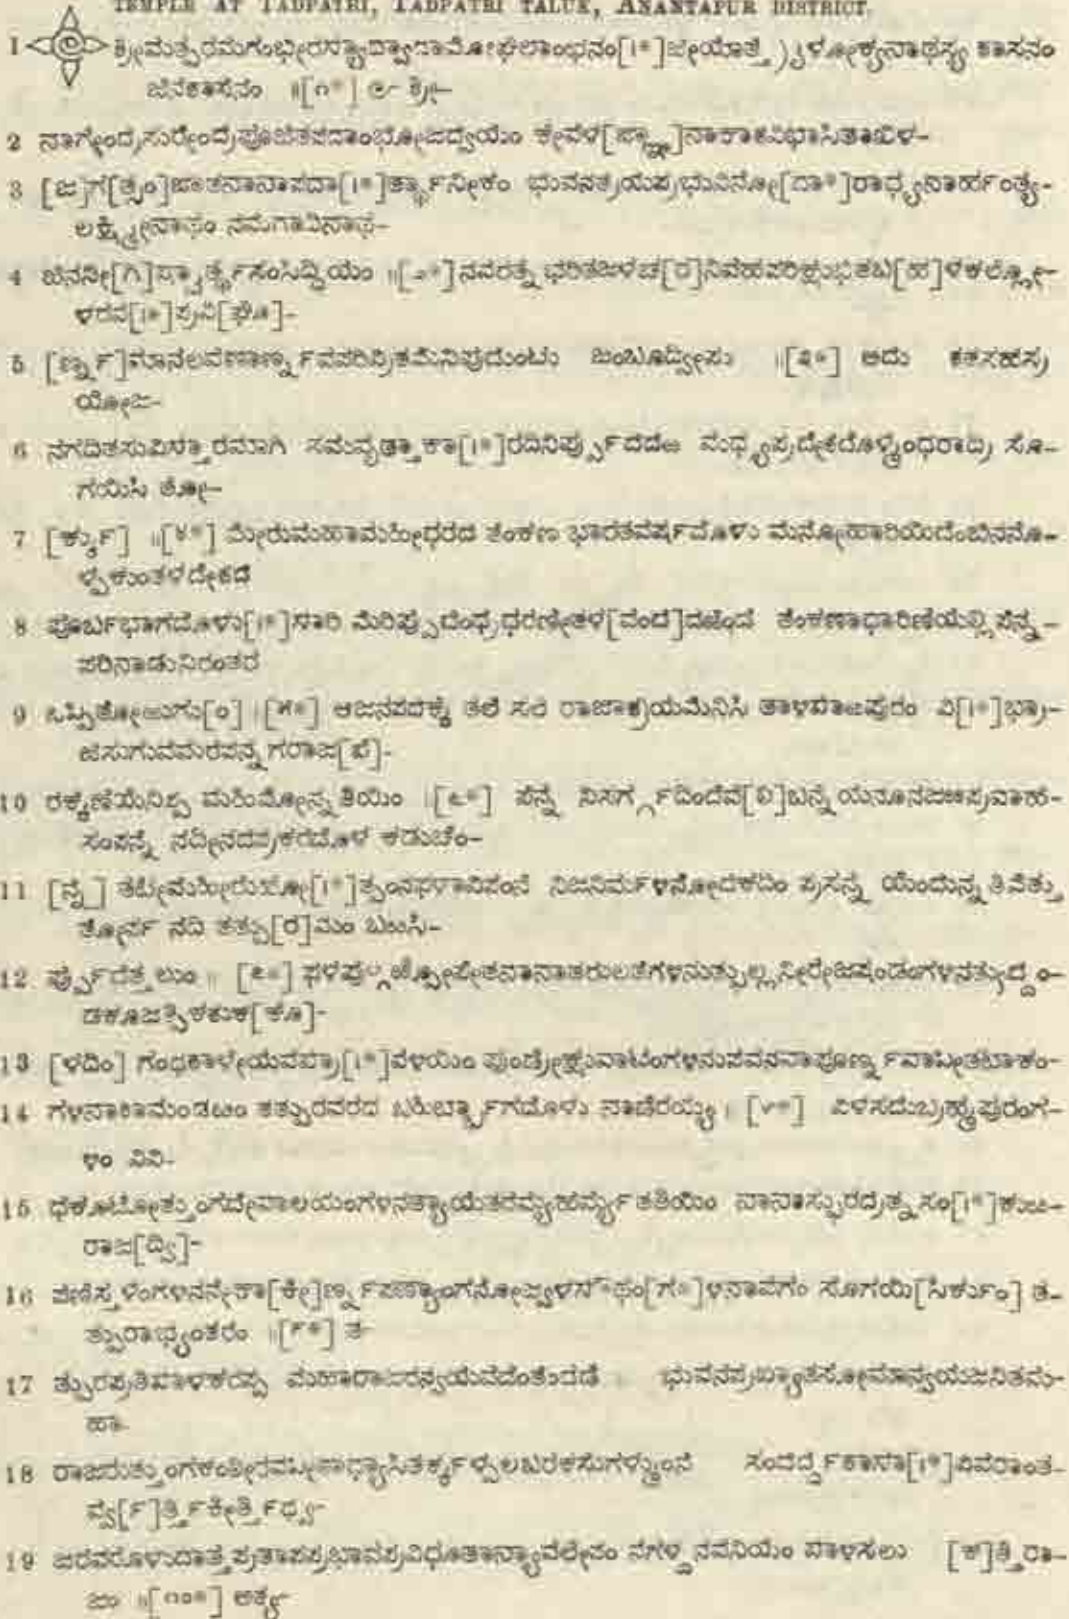 TEMPLE AT TADPATRI, TADPATRI TALUK, ANANTAPUR DISTRICT.
1 ಶ್ರೀಮತ್ಪರಮಗಂಭೀರಸ್ಯಾದ್ವಾದಾಮೋಘಲಾಂಛನಂ[।*]ಜೀಯಾತ್ತ್ರೈಳೋಕ್ಯನಾಥಸ್ಯ ಶಾಸನಂ
ಜಿನಶಾಸನಂ ॥[೧*] ಶ್ರೀ-
2 ನಾಗೇಂದ್ರಸುರೇಂದ್ರಪೂಜಿತಪದಾಂಭೋಜದ್ವಯಂ ಕೇವಳ[ಜ್ಞಾ]ನಾಕಾಶವಿಭಾಸಿತಾಖಿಳ-
3 [ಜ]ಗ[ತ್ಸಂ]ಜಾತನಾನಾಪದಾ[।*]ರ್ತ್ಥಾನೀಕಂ ಭುವನತ್ರಯಪ್ರಭುವಿನೋ[ದಾ*]ರಾಧ್ಯನಾರ್ಹಂತ್ಯ-
ಲಕ್ಷ್ಮೀನಾಥಂ ನಮಗಾವಿನಾಥ-
4 ಜಿನನೀ[ಗಿ]ಷ್ಟಾರ್ತ್ಥಸಂಸಿದ್ಧಿಯಂ ॥[೨*]ನವರತ್ನಭರಿತಜಳಚ[ರ]ನಿವಹಪರಿಕ್ಷುಭಿತಬ[ಹ]ಳಕಲ್ಲೋ-
ಳರವ[।*]ಪ್ರವಿ[ಘೂ]-
5 [ರ್ಣ್ನ]ಮಾನಲವಣಾರ್ಣ್ನವಪರಿವ್ರಿತಮೆನಿಪುದುಂಟು ಜಂಬೂದ್ವೀಪು ॥[೩*] ಅದು ಶತಸಹಸ್ರ
ಯೋಜ-
6 ನಗದಿತಸುವಿಸ್ತಾರಮಾಗಿ ಸಮವೃತ್ತಾಕಾ[।*]ರದಿನಿರ್ಪ್ಪುದದಱ ಮಧ್ಯಪ್ರದೇಶದೊಳ್ಮಂಧರಾದ್ರಿ ಸೊ-
ಗಯಿಸಿ ತೋ-
7 [ರ್ಕ್ಕು] ॥[೪*] ಮೇರುಮಹಾಮಹೀಧರದ ತೆಂಕಣ ಭಾರತವರ್ಷದೊಳು ಮನೋಹಾರಿಯಿದೆಂಬಿನನೊ-
ಳ್ಪಕುಂತಳದೇಶದ
8 ಪೂರ್ಬಭಾಗದೊಳು[।*]ಸಾರಿ ಮೆರಿಪ್ಪುದಂಧ್ರಧರಣೀತಳ[ವಂದ]ದಱಿಂದ ತೆಂಕಣಾಧಾರಿಣಿಯಲ್ಲಿ ಪೆನ್ನ-
ಪರಿನಾಡುನಿರಂತರ
9 ಒಪ್ಪಿತೋಱುಗು[ಂ] ।[೫*] ಆಜನಪದಕ್ಕೆ ತಲೆ ಸಲೆ ರಾಜಾಶ್ರಯಮೆನಿಸಿ ತಾಳಪಾಱಪುರಂ ವಿ[।*]ಭ್ರಾ-
ಜಿಸುಗುವಮರಪನ್ನಗರಾಜ[ಪೆ]-
10 ರಕ್ಕೆಣೆಯೆನಿಪ್ಪ ಮಹಿಮೋನ್ನತಿಯಿಂ ।[೬*] ಪೆನ್ನೆ ನಿಸರ್ಗ್ಗದಿಂದೆವೆ[ಖಿ]ಬನ್ನೆಯನೂನಜಱಪ್ರವಾಹ-
ಸಂಪನ್ನೆ ನದೀನದಪ್ರಕರದೊಳ್ ಕಡುಚೆಂ-
11 [ನ್ನೆ] ತಟೀಮಹೀರುಹೋ[।*]ತ್ಪಂನಫಳಾವಿಪಂನೆ ನಿಜನಿರ್ಮಳನೋದಕದಿಂ ಪ್ರಸನ್ನೆಯೆಂದುನ್ನತಿವೆತ್ತು
ತೋರ್ಪ ನದಿ ತತ್ಪು[ರ]ಮಂ ಬಱಸಿ-
12 ರ್ಪ್ಪುದೆತ್ತಲುಂ ॥ [೭*] ಫಳಪುಷ್ಪಜ್ಝೋಪೇತನಾನಾತರುಲತೆಗಳನುತ್ಪುಲ್ಲನೀರೇಜಷಂಡಂಗಳನತ್ಯುದ್ದಂ-
ಡಕೂಜತ್ಪಿಕಶುಕ[ಕೊ]-
13 [ಳದಿಂ] ಗಂಧಶಾಳೇಯವಪ್ರಾ[।*]ವಳಿಯಿಂ ಪುಂಡ್ರೇಕ್ಷುವಾಟಂಗಳನುಪವನವಾಪೂರ್ಣ್ನವಾಪೀತಟಾಕಂ-
14 ಗಳನಾಕಾಮಂಡಲಂ ತತ್ಪುರವರದ ಬಹಿರ್ಬ್ಭಾಗದೊಳು ನಾಡೆರಯ್ಯಂ । [೮*] ವಿಳಸದುಬ್ರಹ್ಮಪುರಂಗ-
ಳಂ ವಿವಿ-
15 ಧಕೂಟೋತ್ತುಂಗದೇವಾಲಯಂಗಳನತ್ಯಾಯತರಮ್ಯಹರ್ಮ್ಯತತಿಯಿಂ ನಾನಾಸ್ಫುರದ್ರತ್ನಸಂ[।*]ಕುಱ-
ರಾಜ[ದ್ವಿ]-
16 ಪಣಿಸ್ತಳಂಗಳನನೇಕಾ[ಕೀ]ರ್ಣ್ನಪಣ್ಯಾಂಗನೋಜ್ವಳಸೌಧಂ[ಗ*]ಳನಾವಗಂ ಸೊಗಯಿ[ಸಿರ್ಕುಂ] ತ-
ತ್ಪುರಾಭ್ಯಂತರಂ ॥[೯*] ತ-
17 ತ್ಪುರಪ್ರತಿಪಾಳಕರಪ್ಪ ಮಹಾರಾಜರನ್ವಯವದೆಂತೆಂದಡೆ । ಭುವನಪ್ರಖ್ಯಾತಸೋಮಾನ್ವಯಜನಿತಮ-
ಹಾ-
18 ರಾಜರುತ್ತುಂಗಕಂಠೀರವಪೀಠಾಧ್ಯಾಸಿತರ್ಕ್ಕಳ್ಪಲಬರಕಸುಗಳ್ಮುಂನೆ ಸಂದರ್ದ್ದಶಾಸಾ[।*]ವಿವರಾಂತ-
ರ್ವ್ವ[ರ್]ತ್ತಿಕೀರ್ತ್ತಿಧ್ವ-
19 ಜರವರೊಳುದಾತ್ತಪ್ರತಾಪಪ್ರಭಾವಪ್ರವಿಧೂತಾನ್ಯಾವಲೇಪಂ ನೆಗಳ್ದನವನಿಯಂ ಪಾಳಿಸಲು [ಕ]ತ್ತಿರಾ-
ಜಂ ॥[೧೦*] ಅತ್ಯ-